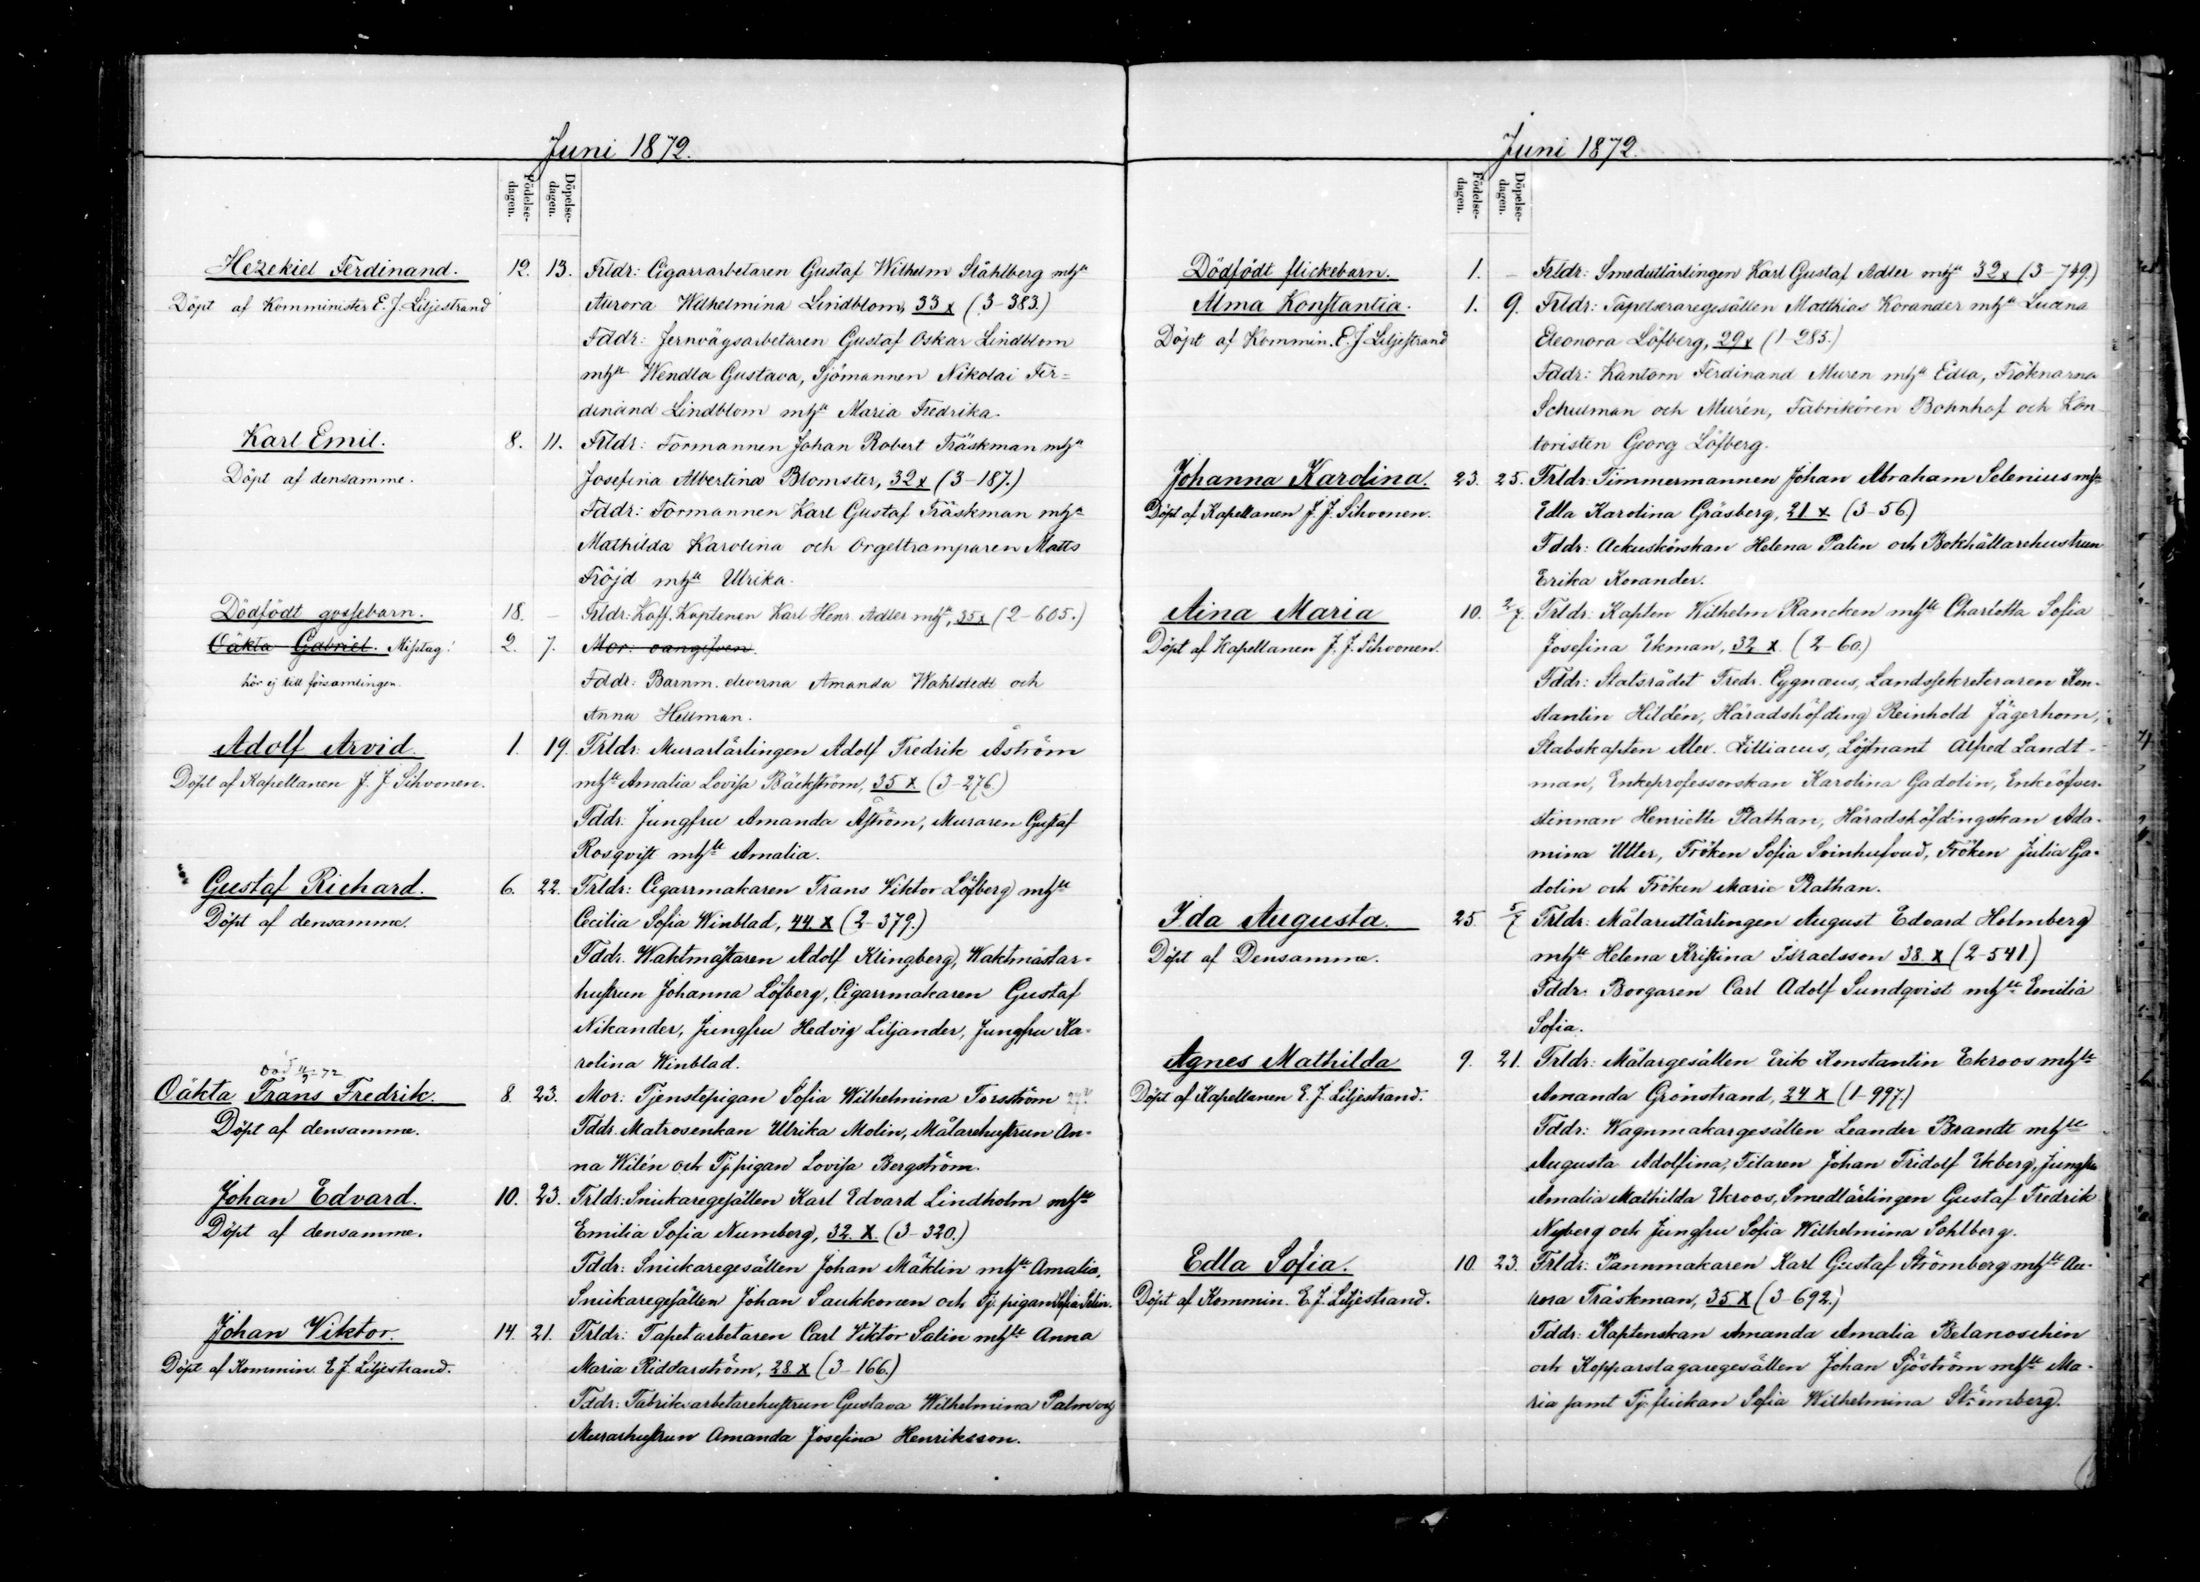 Juni 1872.
Födelse-dagen.
Döpelse-dagen.
Hezekiel Ferdinand. 12. 13. Frldr: Cigarrarbetaren Gustaf Wilhelm Ståhlberg mhu
Döpt af Komminister E. J. Liljestrand Aurora Wilhelmina Lindblom, 33 x (3-383.)
Fddr: Jernvägsarbetaren Gustaf Oskar Lindblom
mhu Wendla Gustava, Sjömannen Nikolai Fer=
dinand Lindblom mhu Maria Fredrika.
Karl Emil. 8. 11. Frldr: Formannen Johan Robert Träskman mhu
Döpt af densamme. Josefina Albertina Blomster, 32 x (3-187.)
Fddr: Formannen Karl Gustaf Träskman mhu
Mathilda Karolina och Orgeltramparen Matts
Fröjd mhu Ulrika.
Dödfödt gossebarn. 18. - Frldr: Koff. Kaptenen Karl Henr. Adler mhu, 35 x (2-605.)
Oäkta Gabriel. Misstag! 2. 7. Mor: oangifven.
hör ej till församlingen. Fddr: Barnm. eleverna Amanda Wahlstedt och
Anna Hellman.
Adolf Arvid. 1. 19. Frldr: Murarlärlingen Adolf Fredrik Åström
Döpt af Kapellanen J. J. Sihvonen. mhu Amalia Lovisa Bäckström, 35 x (3-276.)
Fddr: Jungfru Amanda Åström, Muraren Gustaf
Rosqvist mhu Amalia.
Gustaf Richard. 6. 22. Frldr: Cigarrmakaren Frans Viktor Löfberg mhu
Döpt af densamme. Cecilia Sofia Winblad, 44 x (2-379.)
Fddr. Waktmästaren Adolf Klingberg, Waktmästar-
hustrun Johanna Löfberg, Cigarrmakaren Gustaf
Nikander, Jungfru Hedvig Liljander, Jungfru Ka-
rolina Winblad.
Oäkta Frans Fredrik. 8. 23. Mor: Tjenstepigan Sofia Wilhelmina Forsström
Döpt af densamme. Fddr. Matrosenkan Ulrika Molin, Målarehustrun An-
na Wilén och Tj. pigan Lovisa Bergström.
Johan Edvard. 10. 23. Frldr: Snickaregesällen Karl Edvard Lindholm mhu
Döpt af densamme. Emilia Sofia Numberg, 32 x (3-320.)
Fddr: Snickaregesällen Johan Mäklin mhu Amalia,
Snickaregesällen Johan Saukkonen och Tj. pigan Sofia Selin.
Johan Viktor. 14. 21. Frldr: Tapetarbetaren Carl Viktor Salin mhu Anna
Döpt af Kommin. E. J. Liljestrand. Maria Riddarström, 28 x (3-166.)
Fddr: Fabriksarbetarehustrun Gustava Wilhelmina Palm och
Murarhustrun Amanda Josefina Henriksson.
Juni 1872.
Födelse-dagen.
Döpelse-dagen.
Dödfödt flickebarn. 1. - Frldr: Smedslärlingen Karl Gustaf Adler mhu 32 x (3-749)
Alma Konstantia. 1. 9. Frldr: Tapetseraregesällen Matthias Korander mhu Luana
Döpt af Kommin. E. J. Liljestrand Eleonora Löfberg, 29 x (1-285.)
Fddr: Kantorn Ferdinand Muren mhu Edla, Fröknarna
Schulman och Murén, Fabrikören Bohnhof och Kon-
toristen Georg Löfberg.
Johanna Karolina. 23. 25. Frldr: Timmermannen Johan Abraham Selenius mhu
Döpt af Kapellanen J. J. Sihvonen. Edla Karolina Gräsberg, 21 x (3-56.)
Fddr: Ackuskörskan Helena Palin och Bokhållarehustrun
Erika Korander.
Aina Maria 10. 2/7. Frldr: Kapten Wilhelm Rancken mhu Charlotta Sofia
Döpt af Kapellanen J. J. Sihvonen. Josefina Ekman, 32 x. (2-60.)
Fddr: Statsrådet Fredr. Cygnæus, Landssekreteraren Kon-
stantin Hildén, Häradshöfding Reinhold Jägerhorn,
Stabskapten Alex. Lilliacus, Löjtnant Alfred Landt-
man, Enkeprofessorskan Karolina Gadolin, Enkeöfver-
stinnan Henriette Plathan, Häradshöfdingskan Ada-
mina Utter, Fröken Sofia Svinhufvud, Fröken Julia Ga-
dolin och Fröken Marie Plathan.
Ida Augusta. 25. 5/7 Frldr: Målarelärlingen August Edvard Holmberg
Döpt af Densamme. mhu Helena Kristina Israelsson 38. x (2-541)
Fddr. Borgaren Carl Adolf Sundqvist mhu Emilia
Sofia.
Agnes Mathilda 9. 21. Frldr: Målargesällen Erik Konstantin Ekroos mhu
Döpt af Kapellanen E. J. Liljestrand. Amanda Grönstrand, 24 x (1-997.)
Fddr: Wagnmakargesällen Leander Brandt mhu
Augusta Adolfina, Filaren Johan Fridolf Ekberg, Jungfru
Amalia Mathilda Ekroos, Smedlärlingen Gustaf Fredrik
Nyberg och Jungfru Sofia Wilhelmina Sohlberg.
Edla Sofia. 10. 23. Frldr: Pannmakaren Karl Gustaf Strömberg mhu Au-
Döpt af Kommin. E. J. Liljestrand. rora Träskman, 35 x (3-692.)
Fddr: Kaptenskan Amanda Amalia Belanoschin
och Kopparslagaregesällen Johan Sjöström mhu Ma-
ria samt Tj. flickan Sofia Wilhelmina Strömberg.